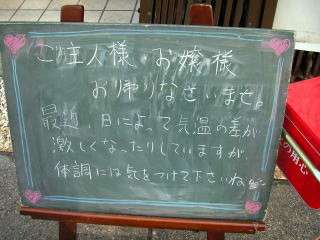 ご主人様、お嬢様
お帰りなさいませ。
最近、日によって気温の差が
激しくなったりしていますが
体調には気をつけて下さいね
の用心